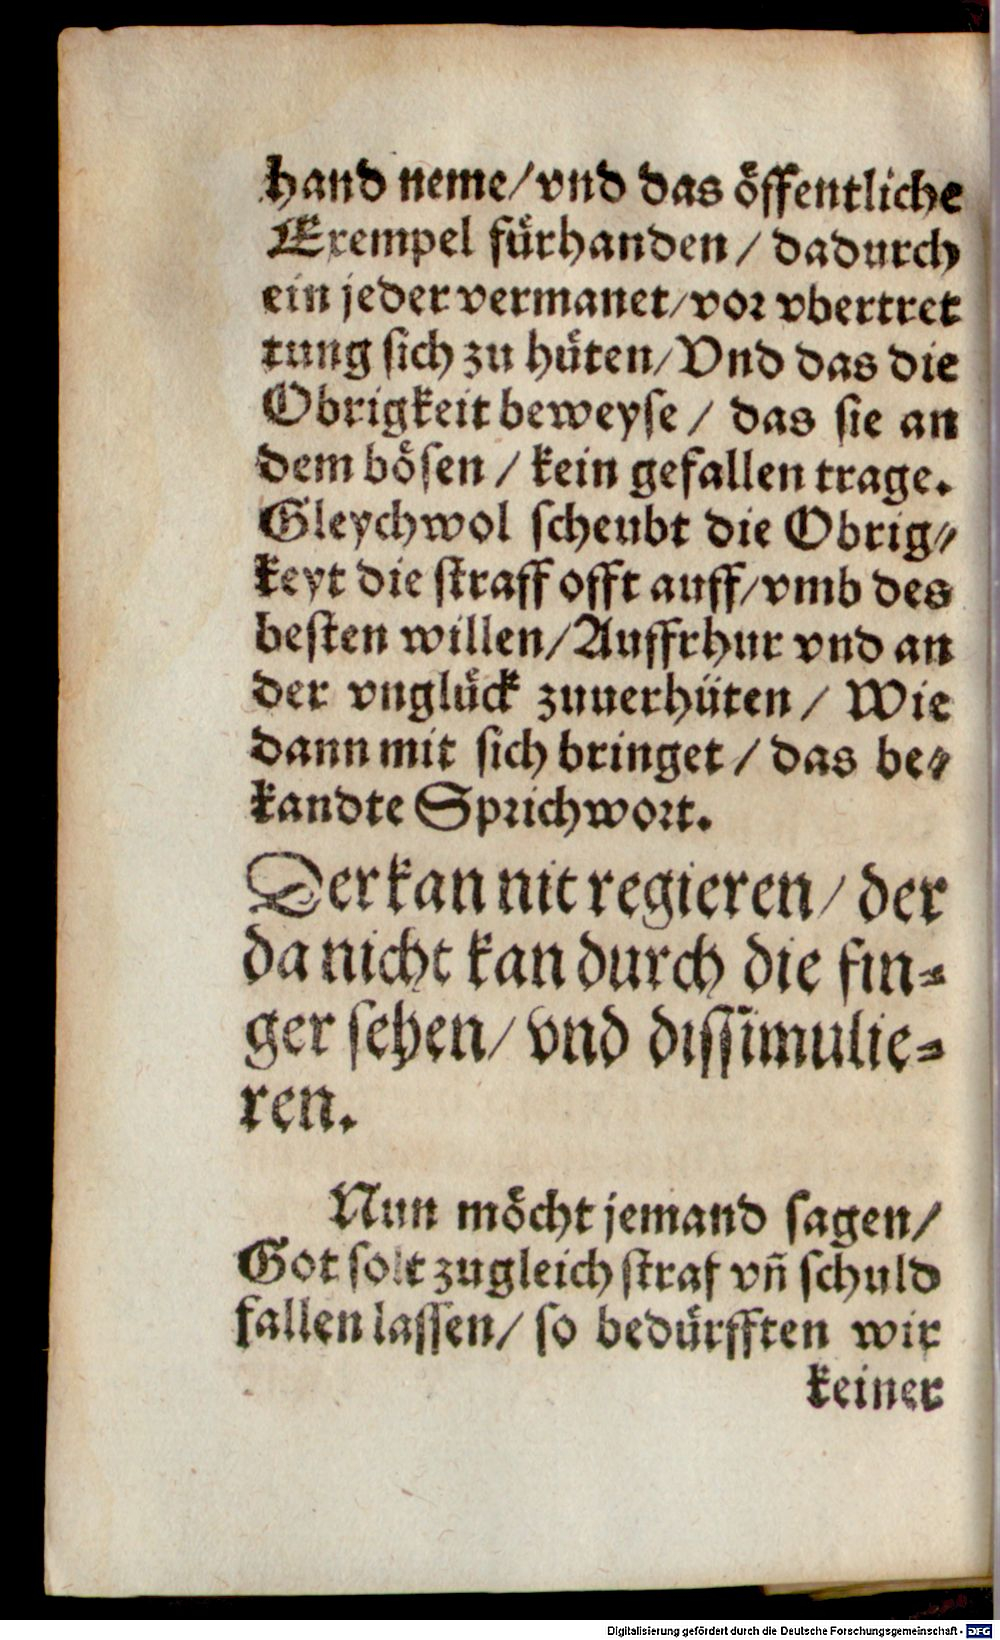 hand neme/ vnd das öffentliche
Exempel fürhanden / dadurch
ein jeder vermanet/ vor vbertret
tung sich zu hüten/ Vnd das die
Obrigkeit beweyse / das sie an
dem bösen / kein gefallen trage.
Gleychwol scheubt die Obrig⸗
keyt die straff offt auff/ vmb des
besten willen/ Auffrhur vnd an
der vnglück zuuerhüten / Wie
dann mit sich bringet / das be⸗
kandte Sprichwort.
Der kan nit regieren/ der
da nicht kan durch die fin⸗
ger sehen/ vnd dissimulie⸗
ren.
Nun möcht jemand sagen/
Got solt zugleich straf vñ schuld
fallen lassen/ so bedürfften wir
keiner
Digitalisierung gefördert durch die Deutsche Forschungsgemeinschaft - DFG